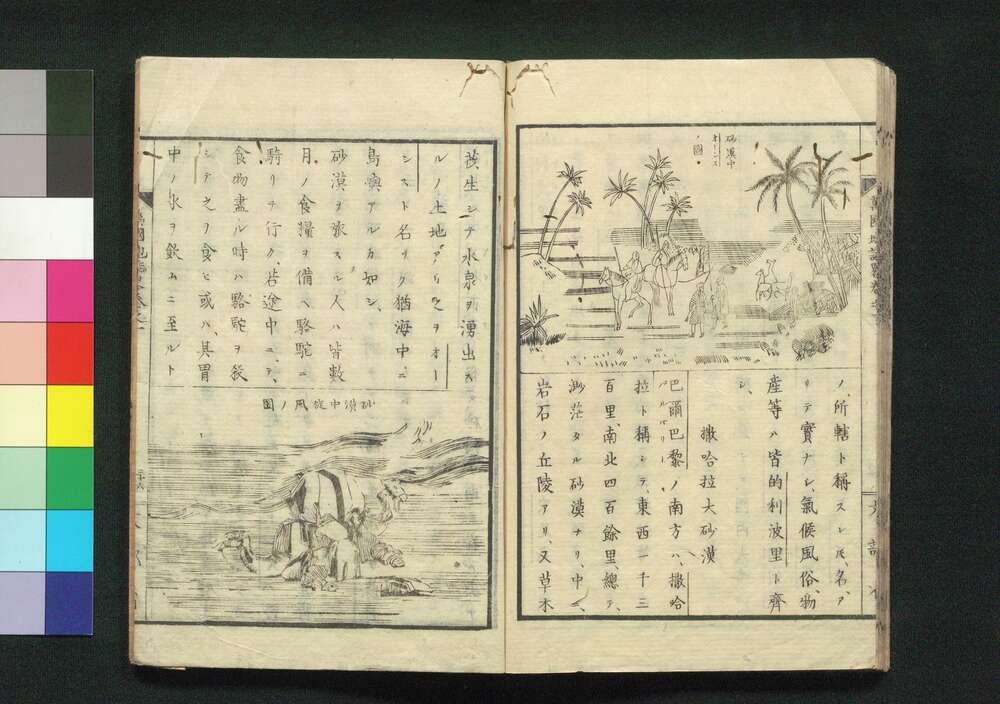 砂漠中
オーシス
ノ圖
ノ所轄ト稱スレ𪜈、名、ア
リテ實ナシ、氣候風俗、物
産等ハ皆的利波里ト齊
シ、
撒哈拉大砂漠
巴爾巴黎ノ南方ハ、撒哈
バルバリー
拉ト稱シテ、東西一千三
百里、南北四百餘里、總テ、
渺茫タル砂漠ナリ、中ニ、
岩石ノ丘陵アリ、又草木
茂生シテ水泉ヲ湧出ス
ルノ土地アリ之ヲオー
シスト名ク猶海中ニ
島嶼アルカ如シ、
砂漠ヲ旅スル人ハ皆數
月ノ食糧ヲ備ヘ駱駝ニ
騎リテ行ク、若途中ニテ、
食物盡ル時ハ駱駝ヲ殺
シテ之ヲ食ヒ或ハ、其胃
中ノ水ヲ飲ムニ至ルト
砂漠中旋風ノ圖